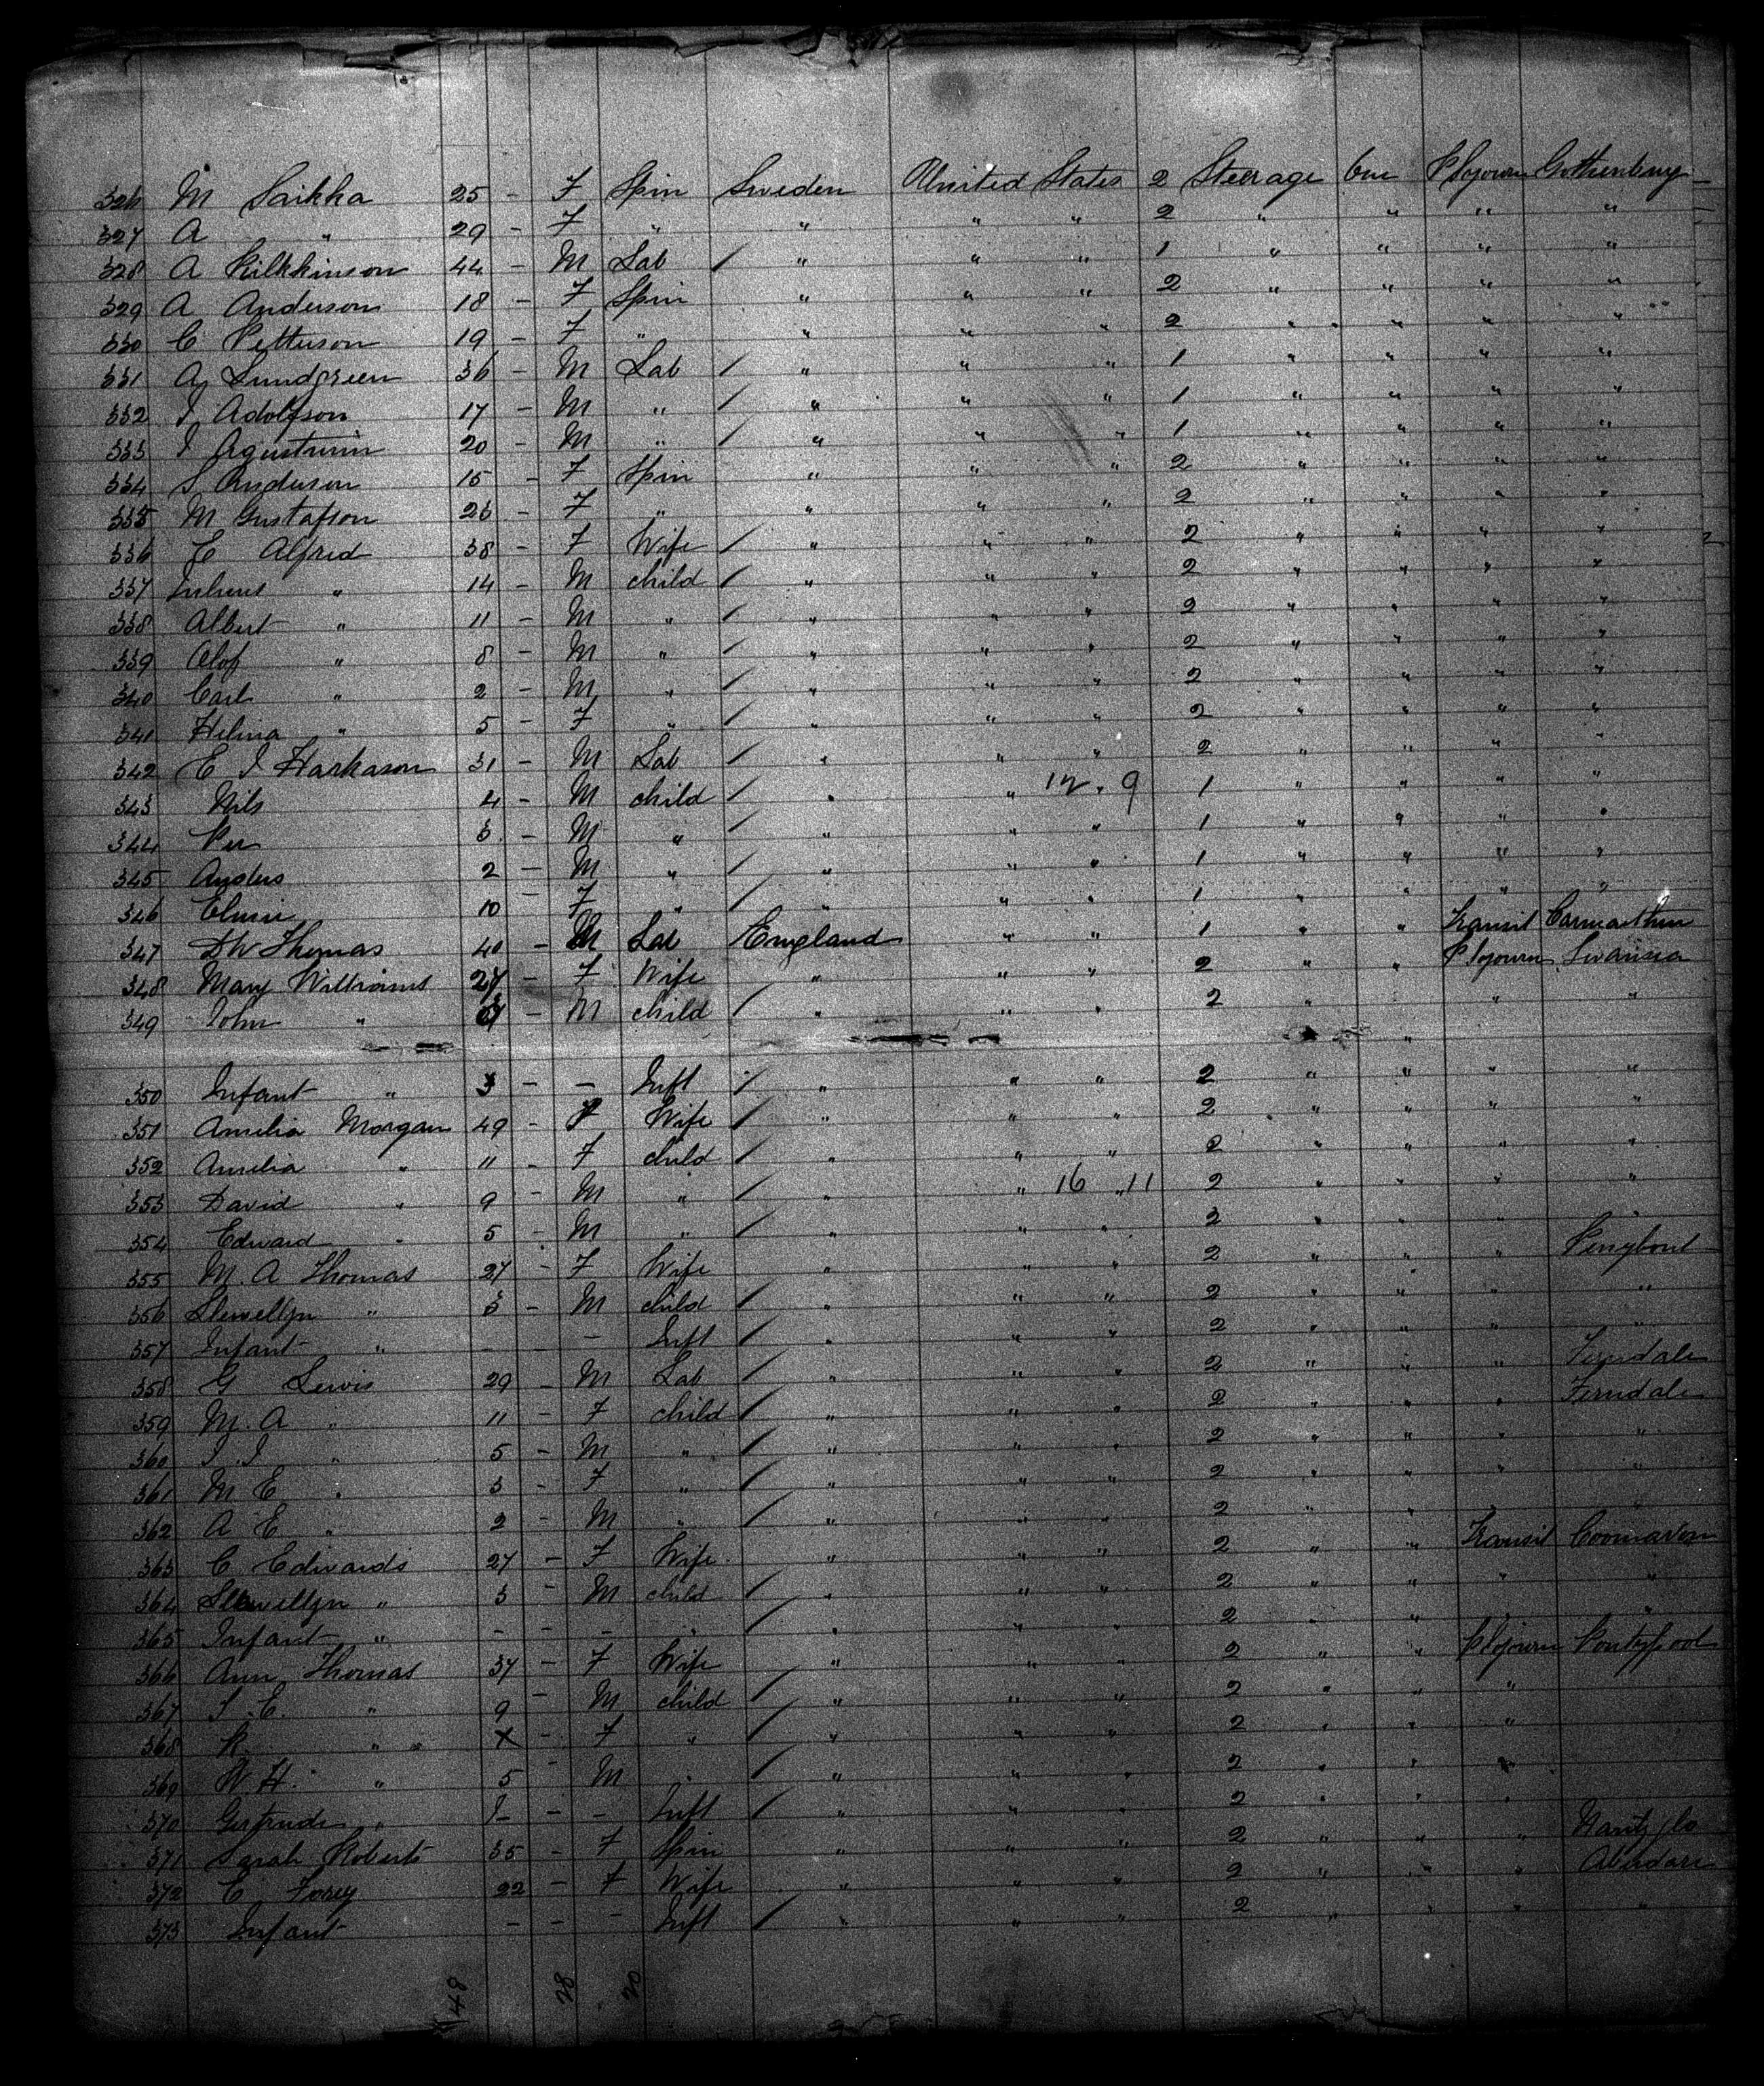 326 M Saikka 25 - F Spin Sweden United States 2 Steerage One P Sojourn Gothenburg
327 A " 29 - F " " " " 2 " " " "
328 A 44 - M Lab / " " " 1 " " " "
329 A Anderson 18 - F Spin " " " 2 " " " "
330 C Petterson 19 - F " " " " 2 " " " "
331 A Lundgreen 36 - M Lab / " " " 1 " " " "
332 J Adolfson 17 - M " / " " " 1 " " " "
333 J 20 - M " / " " " 1 " " " "
334 S Anderson 15 - F Spin " " " 2 " " " "
335 M Gustafson 23 - F " " " " 2 " " " "
336 E Alfred 38 - F Wife / " " " 2 " " " "
337 Julius " 14 - M child / " " " 2 " " " "
338 Albert " 11 - M " / " " " 2 " " " "
339 Olof " 8 - M " / " " " 2 " " " "
340 Carl " 2 - M " / " " " 2 " " " "
341 Hilma " 5 - F " / " " " 2 " " " "
342 E J Harkason 31 - M Lab / " " " 2 " " " "
343 Nils 4 - M child / " " 12 . 9 1 " " " "
344 Per 3 - M " / " " " 1 " " " "
345 Anders 2 - M " / " " " 1 " " " "
346 10 - F " / " " " 1 " " " "
347 D W Thomas 40 - M Lab England " " 1 " " Transit Carmarthen
348 Mary Williams 27 - F Wife " " " 2 " " P Sojourn Swansea
349 John " - M child / " " " 2 " " " "
350 Infant " - - Inft / " " " 2 " " " "
351 Amelia Morgan 49 - F Wife / " " " 2 " " " "
352 Amelia " 11 - F child / " " " 2 " " " "
353 David " 9 - M " / " " 16 . 11 2 " " " "
354 Edward " 5 - M " / " " " 2 " " " "
355 M. A Thomas 27 - F Wife " " " 2 " " " Penybont
356 Llewellyn " 3 - M child / " " " 2 " " " "
357 Infant " - - - Inft / " " " 2 " " " "
358 G Lewis 29 - M Lab / " " " 2 " " " Ferndale
359 M. A " 11 - F child / " " " 2 " " " Ferndale
360 J. J " 5 - M " / " " " 2 " " " "
361 M E " 3 - F " / " " " 2 " " " "
362 A E " 2 - M " / " " " 2 " " " "
363 C Edwards 27 - F Wife " " " 2 " " Transit
364 Llewellyn " 3 - M child / " " " 2 " " " "
365 Infant " - - - " / " " " 2 " " " "
366 Ann Thomas 37 - F Wife " " " 2 " " P Sojourn Pontypool
367 J. E. " 9 - M child / " " " 2 " " "
368 R " - F " / " " " 2 " " "
369 W. H. " 5 - M " / " " " 2 " " "
370 Gertrude " - - Inft / " " " 2 " " "
371 Sarah Roberts 35 - F Spin " " " 2 " " " Nantyglo
372 C 22 - F Wife " " " 2 " " " Aberdare
373 Infant - - - Inft / " " " 2 " " " "
48 28 20